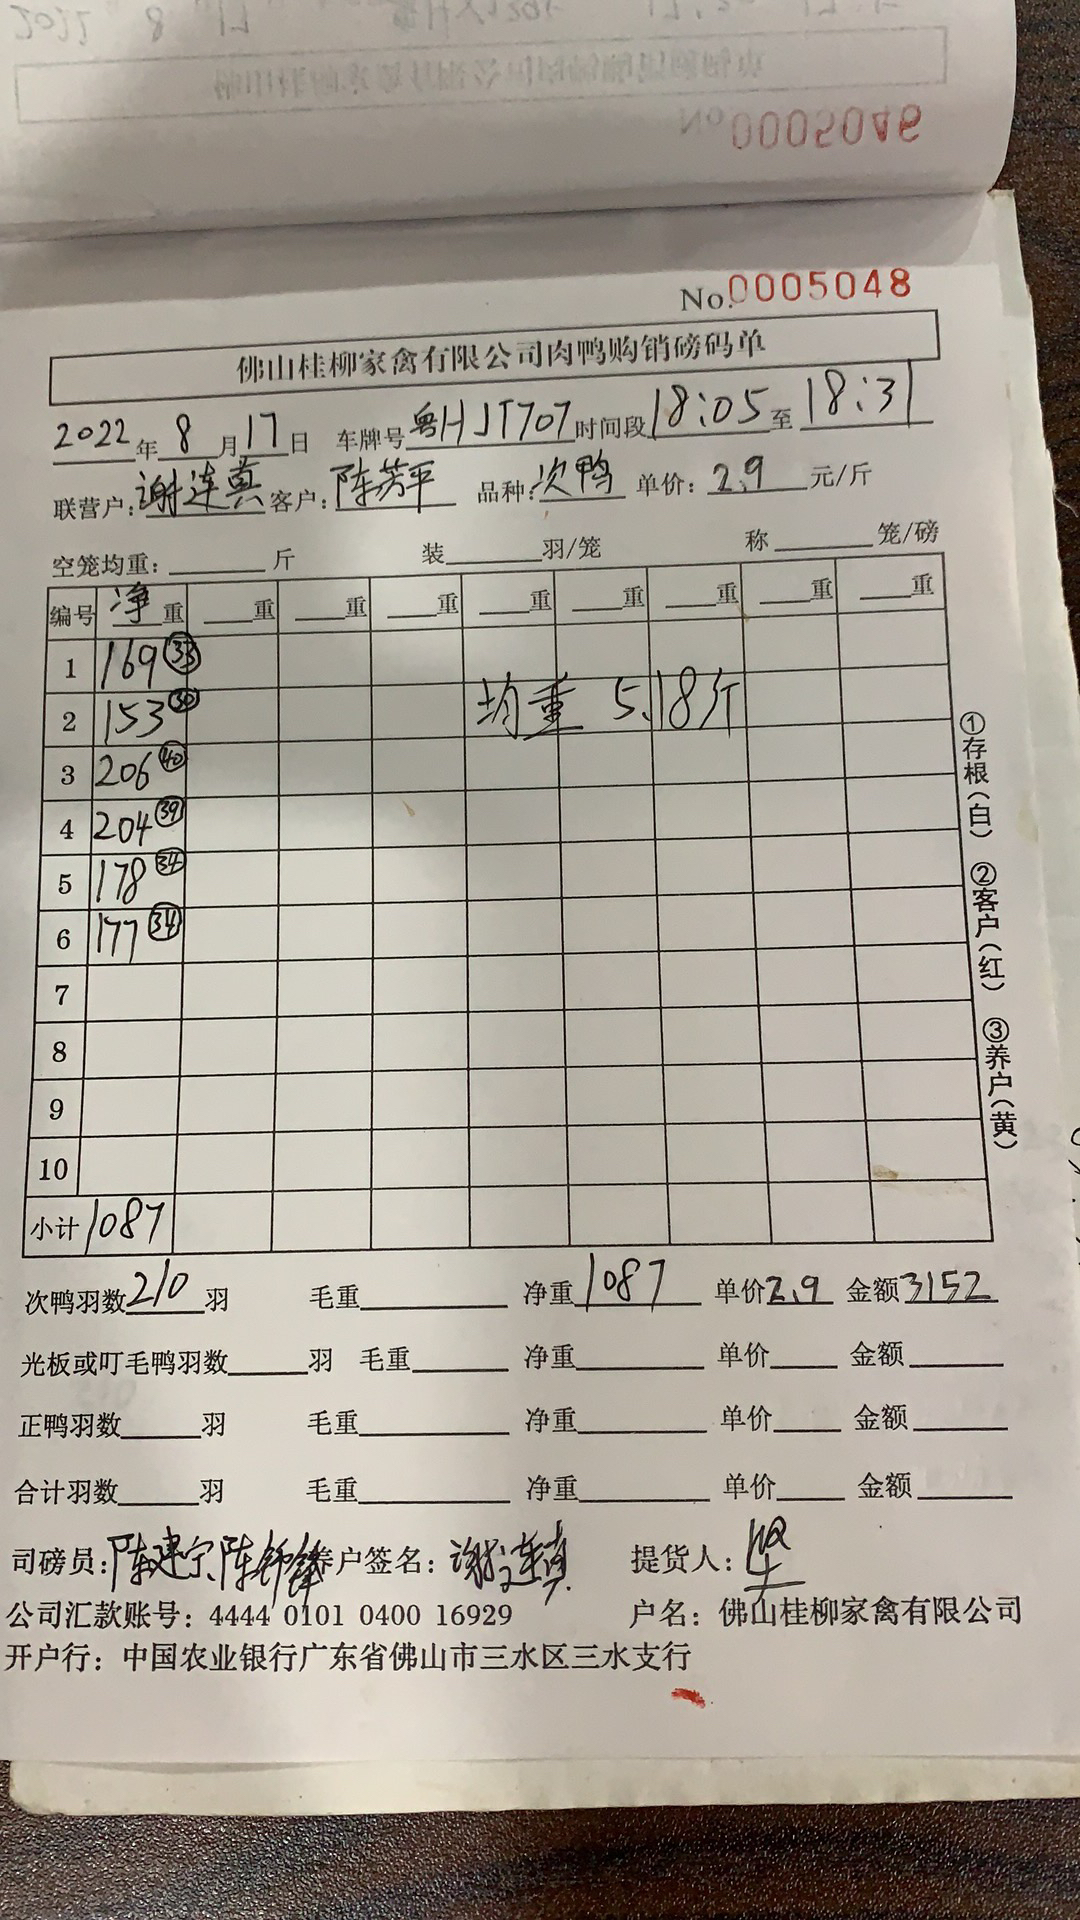 No.0005046
No.0005048
佛山桂柳家禽有限公司肉鸭购销磅码单
2022年8月17日 车牌号粤HJT707时间段18:05至18:31
联营户:谢连真客户:陈芳平 品种:次鸭 单价:2.9元/斤
空笼均重:______斤 装______羽/笼 称______笼/磅
编号 净重 __重 __重 __重 __重 __重 __重 __重 __重
1 169 ㉝
2 153 ㉚ 均重 5.18斤
3 206 ㊵
4 204 ㊴
5 178 ㉞
6 177 ㉞
7
8
9
10
小计 1087
①存根(白) ②客户(红) ③养户(黄)
次鸭羽数210羽 毛重______ 净重1087 单价2.9 金额3152
光板或叮毛鸭羽数____羽 毛重______ 净重______ 单价____ 金额____
正鸭羽数____羽 毛重______ 净重______ 单价____ 金额____
合计羽数____羽 毛重______ 净重______ 单价____ 金额____
司磅员:陈建宁、陈 养户签名:谢连真 提货人:
公司汇款账号: 4444 0101 0400 16929 户名: 佛山桂柳家禽有限公司
开户行: 中国农业银行广东省佛山市三水区三水支行